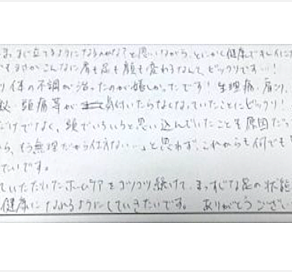 まっすぐ立てるようになるんかな？と思いながら、とにかく健康でキレイに
もまさかこんなに肩も足も顔も変わるなんて、ビックリです…！
り体の不調が治ったのが嬉しかったです！生理痛・肩こり、
・頭痛等が 気付いたらなくなっていたことにビックリ！
だけでなく、頭でいろいろと思い込んでいたことも原因だっ
から、もう無理だから仕方ない…。と思わず、これからも何でも
たいです。
ていただいたホームケアをコツコツ続けて、まっすぐな足の状態
健康になれるようにしていきたいです。ありがとうござい